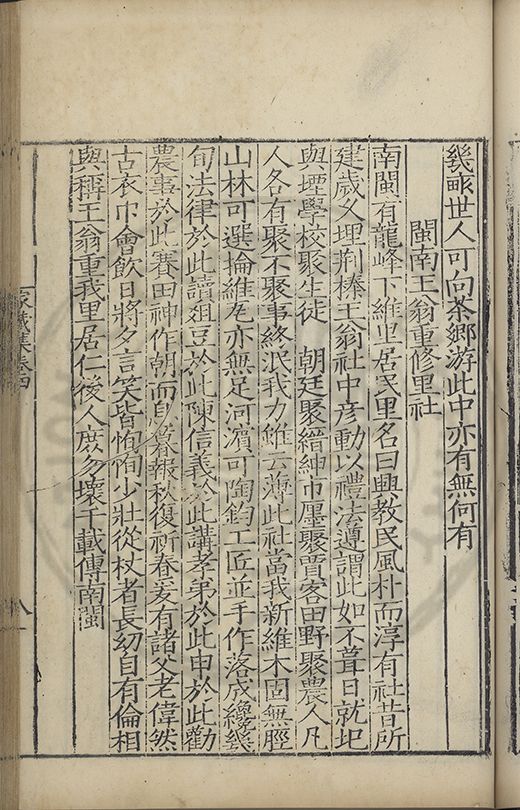 幾畝世人可向茶鄉游此中亦有無何有
閩南王翁重修里社
南閩有龍峰下維里居民里名曰興教民風朴而淳有社昔所
建歲久埋荊榛王翁社中彥動以禮法遵謂此如不葺日就圮
與堙學校聚生徒 朝廷聚縉紳市廛聚賈客田野聚農人凡
人各有聚不聚事終泯我力雖云薄此社當我新維木固無脛
山林可選掄維瓦亦無足河濱可陶鈞工匠並手作落成纔幾
旬法律於此讀俎豆於此陳信義於此講孝弟於此申於此勸
農事於此賽田神作朝而息暮報秋復祈春爰有諸父老偉然
古衣巾會飲日將夕言笑皆恂恂少壯從杖者長幼自有倫相
與稱王翁重我里居仁後人庶勿壞千載傳南閩
集卷四
八